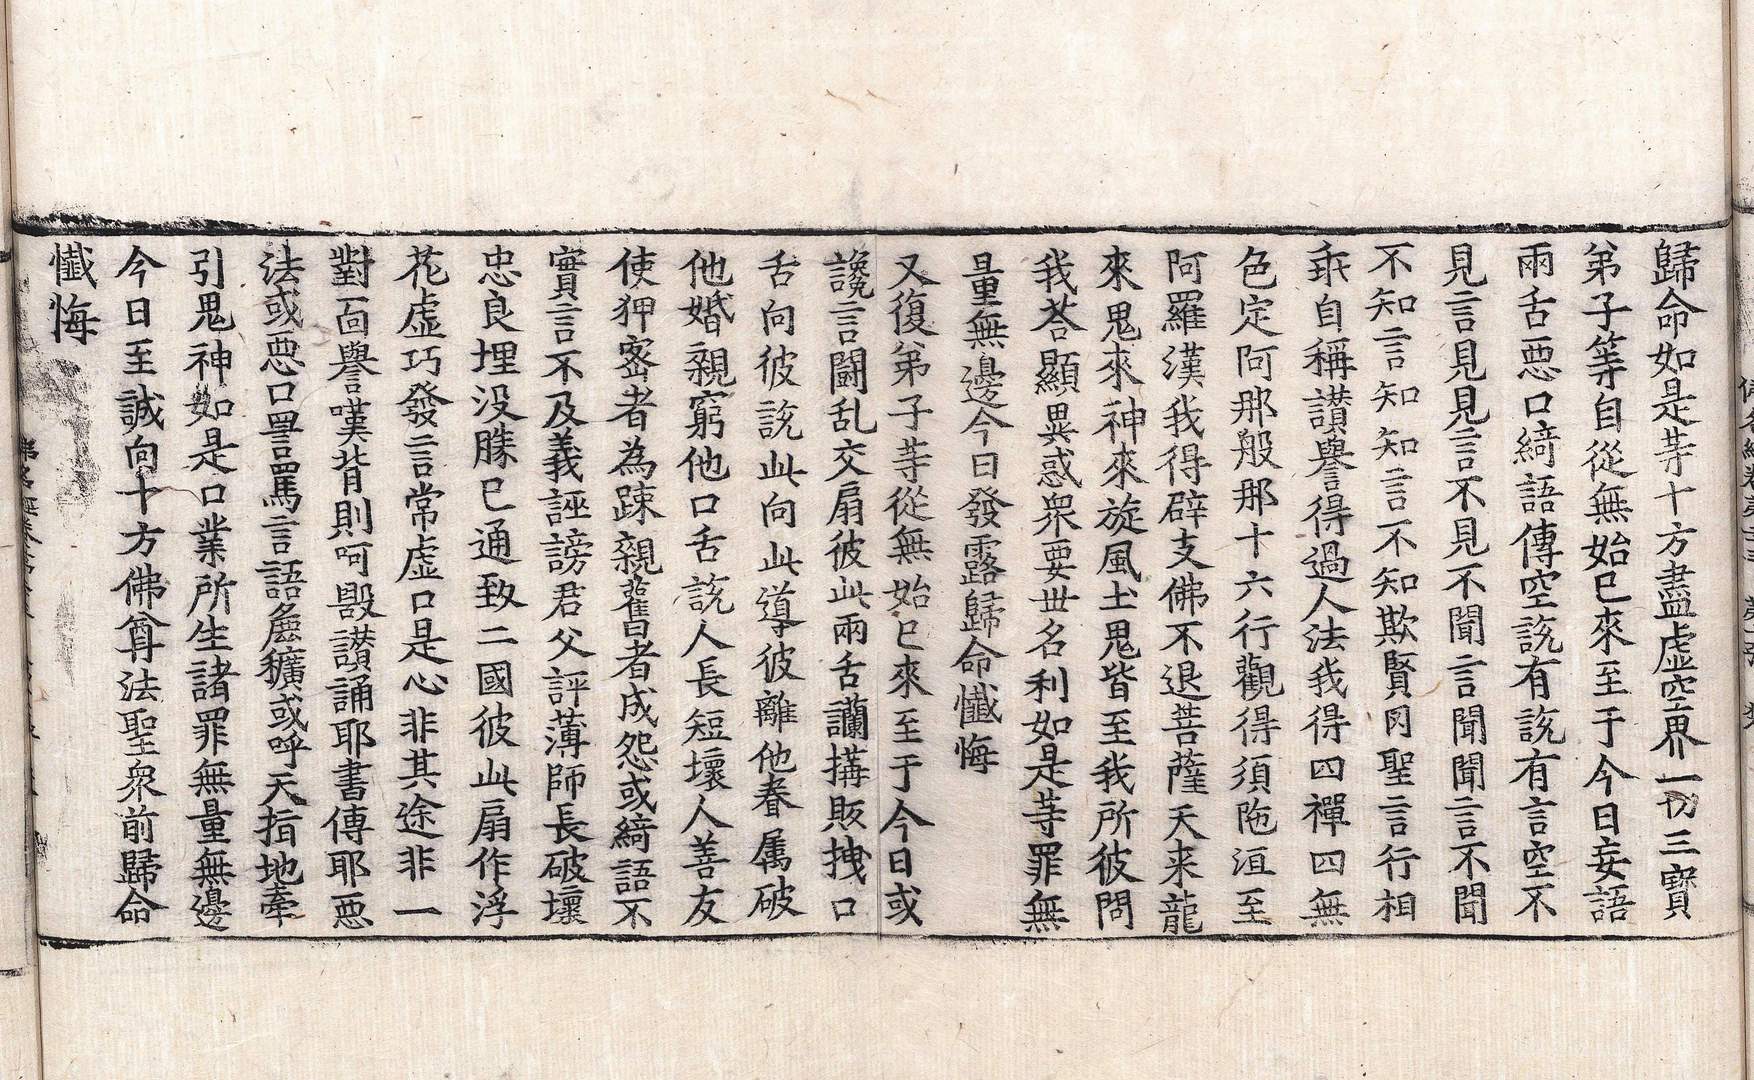 歸命如是等十方盡虛空界一切三寶
弟子等自從無始已來至于今日妄語
兩舌惡口綺語傳空說有說有言空不
見言見見言不見不聞言聞聞言不聞
不知言知知言不知欺賢罔聖言行相
乖自稱讃譽得過人法我得四禪四無
色定阿那般那十六行觀得須陁洹至
阿羅漢我得辟支佛不退菩薩天来龍
來鬼來神來旋風土鬼皆至我所彼問
我荅顯異惑衆要世名利如是等罪無
量無邊今日發露歸命懺悔
又復弟子等從無始已來至于今日或
讒言鬪乱交扇彼此兩舌讕搆販拽口
舌向彼說此向此導彼離他眷属破
他婚親窮他口舌說人長短壞人善友
使狎宻者為踈親舊者成怨或綺語不
實言不及義誣謗君父評薄師長破壞
忠良埋没勝已通致二國彼此扇作浮
花虛巧發言常虛口是心非其途非一
對面譽嘆背則呵毀讃誦耶書傳耶惡
法或惡口罵詈言語麁獷或呼天揩地牽
引鬼神如是口業所生諸罪無量無邊
今日至誠向十方佛尊法聖衆前歸命
懺悔